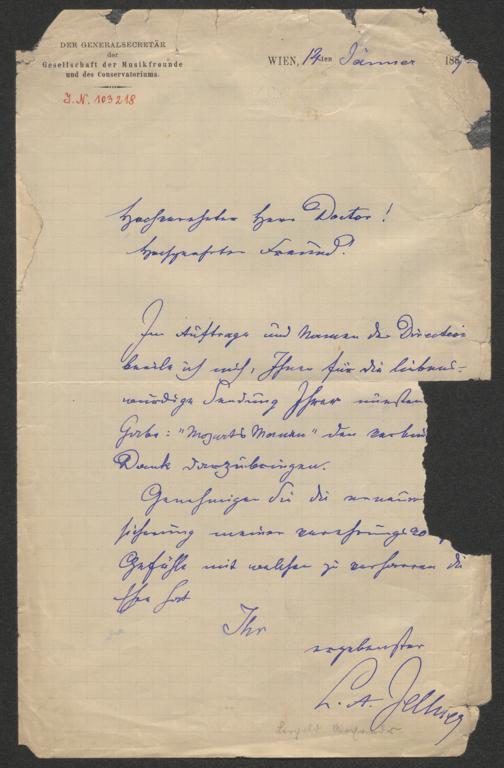 DER GENERALSECRETÄR
der
Gesellschaft der Musikfreunde
und des Conservatoriums.
WIEN, 14ten Jänner 189
J.N. 103218
Hochverehrter Herr Doctor!
Hochgeehrter Freund!
Im Auftrage und Namen der Direction
beeile ich mich, Ihnen für die liebens-
würdige Sendung Ihrer neuesten
Gabe: "Mozarts Manen" den verbin
Dank darzubringen.
Genehmigen Sie die erneuer
sicherung meiner verehrungsvo
Gefühle mit welchen zu verharren die
Ehre hat
Ihr
ergebenster
L. A. Zellner
Leopold Alexander